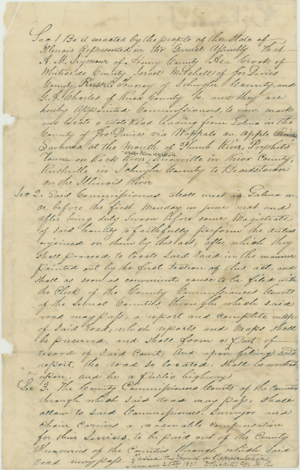 Sec 1. Be it enacted by the people of the State of
Illinois represented in the General Assembly That
A. M. Seymour of Henry County
Whitesides County Mitchell of Jo Davies
County of Schuyler County, and
of Knox County be, and they are
hereby appointed Commissioners, to view, mark
and locate a State Road leading from Galena in the
County of Jo Davies via Wapello on Apple
Savanna at the Mouth of Plumb River, Prophets
town on Rock River, Knoxville in Knox County,
Rushville in Schuyler County to Beardstown
on the Illinois River
Sec 2. Said Commissioners shall meet in Galena on
or before the first Monday in June next and
after being duly sworn before some Magistrate
of said County to faithfully perform the duties
enjoined on them by this act, after which they
shall proceed to locate said Road in the manner
pointed out by the first section of this act, and
shall as soon as convenient cause to be filed with
the Clerk of the County Commissioners Courts
of the several Counties through which said
road may pass, a report and complete map
of said Road, which reports and Maps shall
be preserved, and shall form a part of
record of said Court, And upon filing said
report the road so located shall be
a public highway.
Sec 3. The County Commissioners Courts of the Counties
through which said road may pass, shall
allow to said Commissioners Surveyor and
chain carriers a reasonable compensation
for their services, to be paid out of the County
Treasuries of the Counties through which said
road may pass.